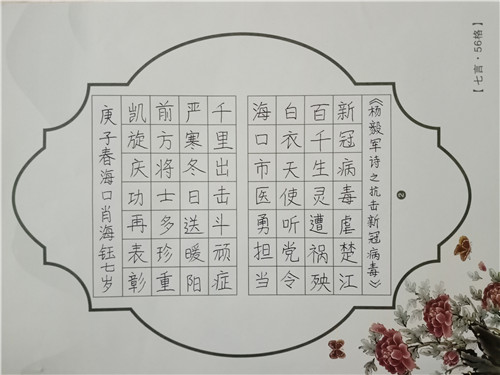 【七言·56格】
2
《杨毅军诗之抗击新冠病毒》
新冠病毒虐楚江
百千生灵遭祸殃
白衣天使听党令
海口市医勇担当
千里出击斗顽症
严寒冬日送暖阳
前方将士多珍重
凯旋庆功再表彰
庚子春海口肖海钰七岁